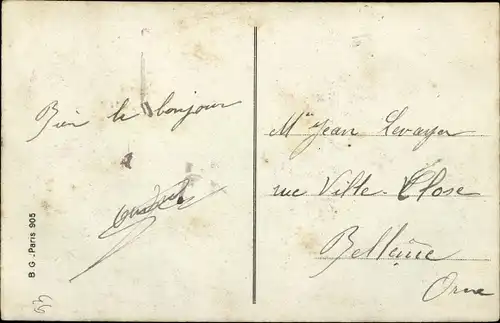 Bien le bonjour
B.G. Paris 905
Mr Jean Levayer
rue Ville-Close
Bellême
Orne